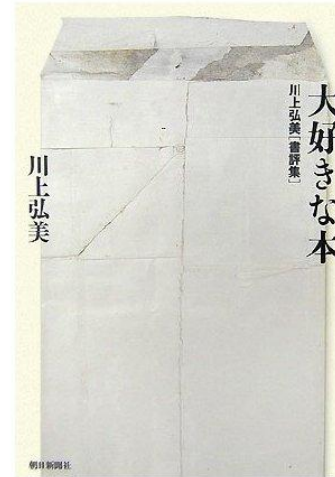 大好きな本
川上弘美[書評集]
川上弘美
朝日新聞社